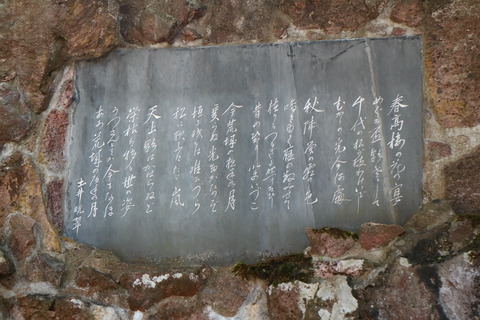 春高楼の花の宴
めぐる盃影さして
千代の松が枝わけいでし
むかしの光今何處
秋陣営の霜の色
鳴き行く雁の数見せて
植うるつるぎに照りそひし
昔の光今いづこ
今荒城の夜半の月
変らぬ光誰がためぞ
垣に残るは唯かつら
松に歌ふはたゞ嵐
天上影はかはらねど
栄枯は移る世の姿
うつさんとてか今もなほ
あゝ荒城の夜半の月
土井晩翠